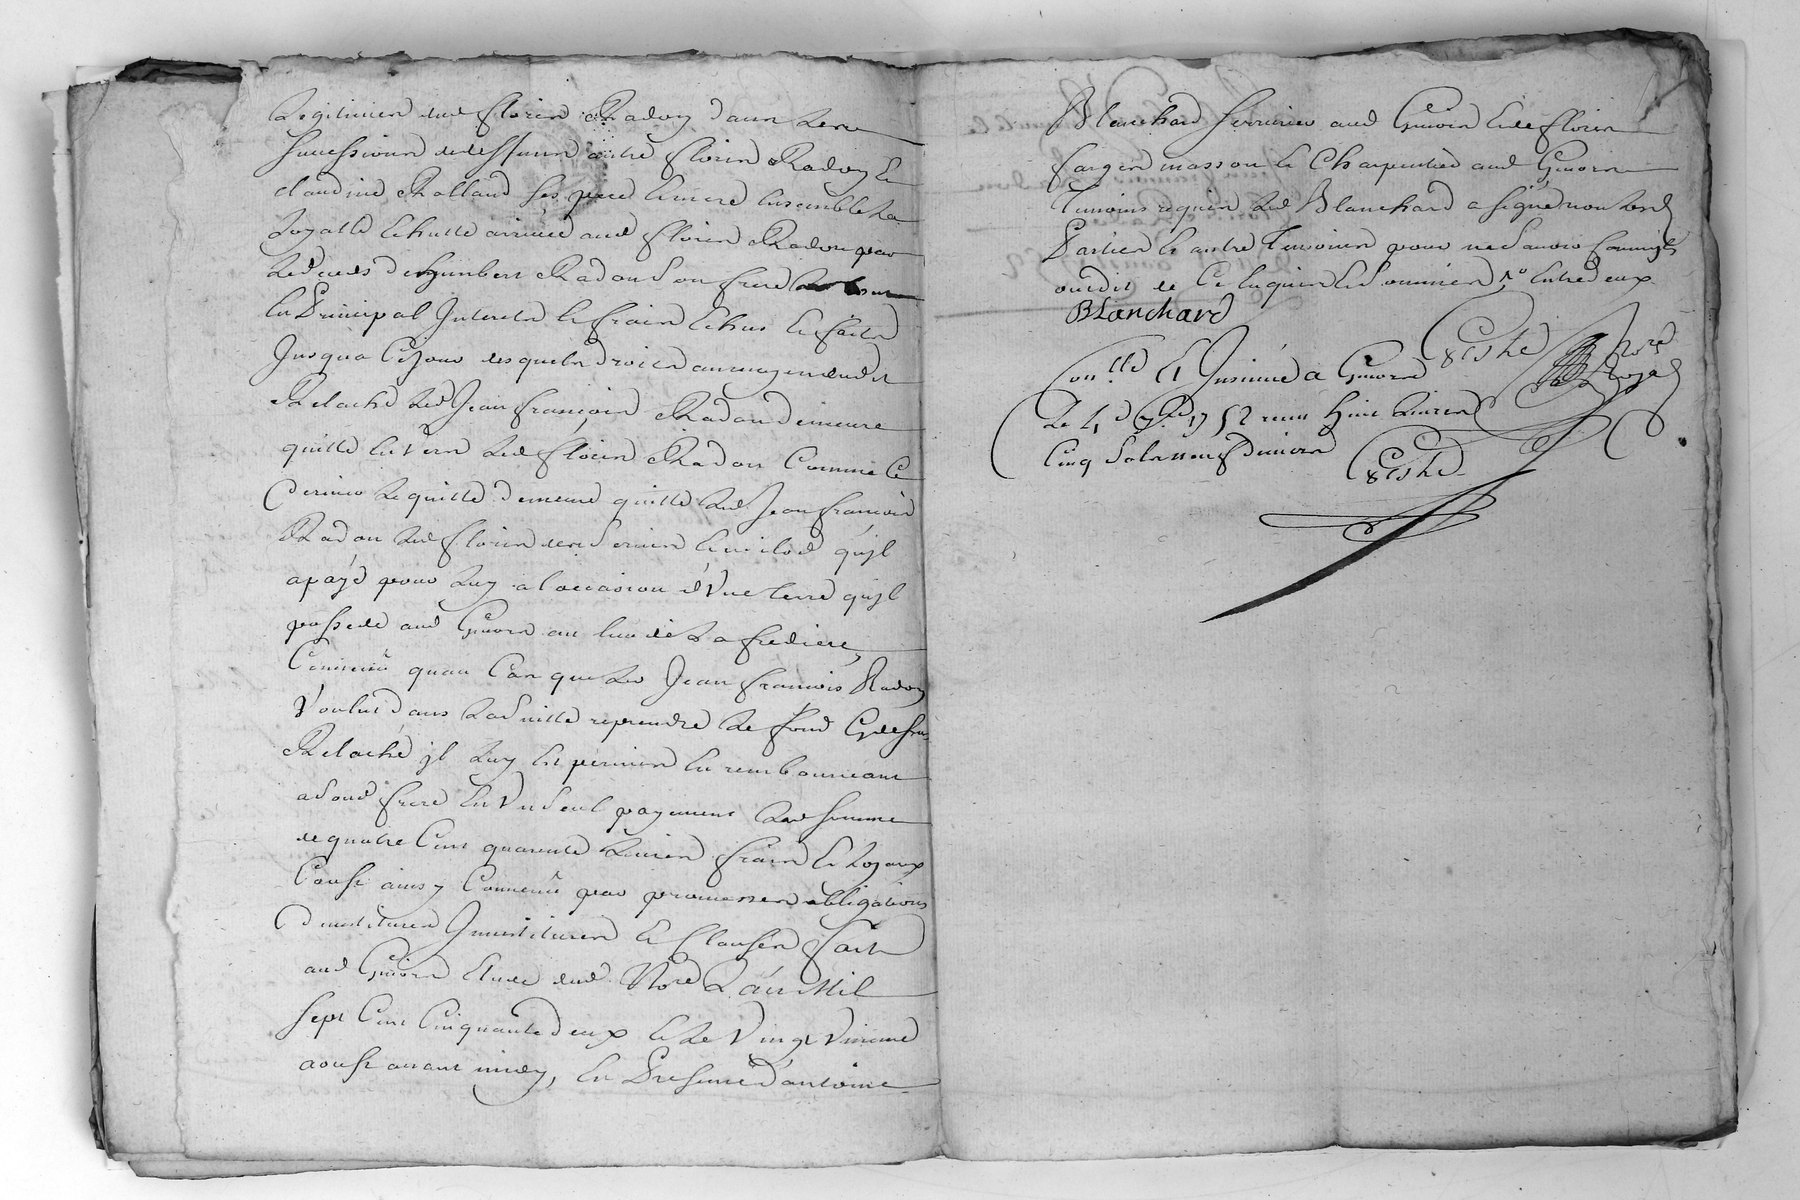 Legitimer dud florin Radou dans les
successions desdeffunts autre florin Radou et
claudine Rolland ses pere et mere ensemble la
loyalle echutte arrivée aud florin Radou par
le deces d'humbert Radou son frere
en Principal Interets et frais echus et faits
Jusqua Ce jour desquels droits au moyen dud
Relaché led Jean françois Radou demeure
quitte envers led florin Radou Comme Ce
dernier le quitte demeure quitte led Jean françois
Radou led florin des deniers qu'jl
a payé pour luy a l'occasion d'Vne terre qu'jl
possede aud Givors au lieu de La frediere,
Convenu quau Cas que led Jean francois Radou
Voulut dans la suitte reprendre le fond Cy dessus
Relaché jl luy est permis en remboursant
a sond frere en Vn seul payement lad somme
de quatre Cent quarante livres frais et loyaux
Coust ainsy Convenu par promesses obligations
devestitures Jnvestitures et Clauses fait
aud Givors Etude dud No.re L'an Mil
sept Cent Cinquante deux et le Vingt Vnieme
aoust avant midy, En Presence d'antoine
Blanchard serrurier aud Givors et de florin
farge masson et Charpentier aud Givors
temoins requis led Blanchard a signé non lesd
Parties et autre temoins pour ne Scavoir
ouedit de Ce enquis et sommés, Entre deux
Blanchard
Con.llé Et Jnsinué a Givors
Le 4.e 7.bre 1752 reçu huit livres
Cinq Sols neuf deniers